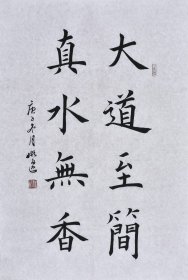 大道至簡
真水無香
庚子冬月